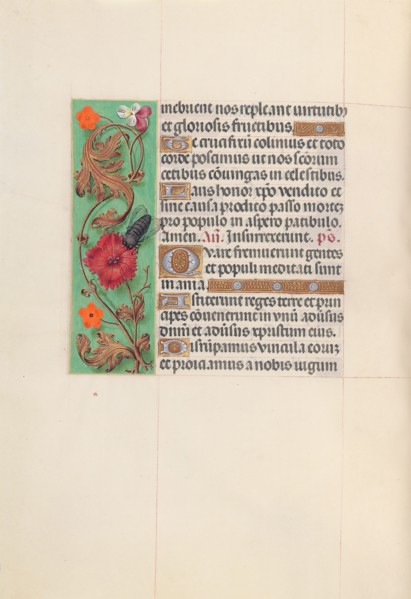 inebrient nos repleant virtutib9
et gloriosis fructibus.
Te crucifixū colimus et toto
corde poscimus ut nos scōrum
cetibus cōiungas in celestibus.
Laus honor xp̄o vendito et
sine causa prodito passo mortez
pro populo in aspero patibulo.
amen. Añ. Insurrexerunt. ps̄.
Quare fremuerunt gentes
et populi meditati sunt
inania.
Astiterunt reges terre et prin
cipes cōvenerunt in unū adūsus
dnūm et adūsus xpristum eius.
Disrūpamus vincula eorum
et proiciamus a nobis iugum